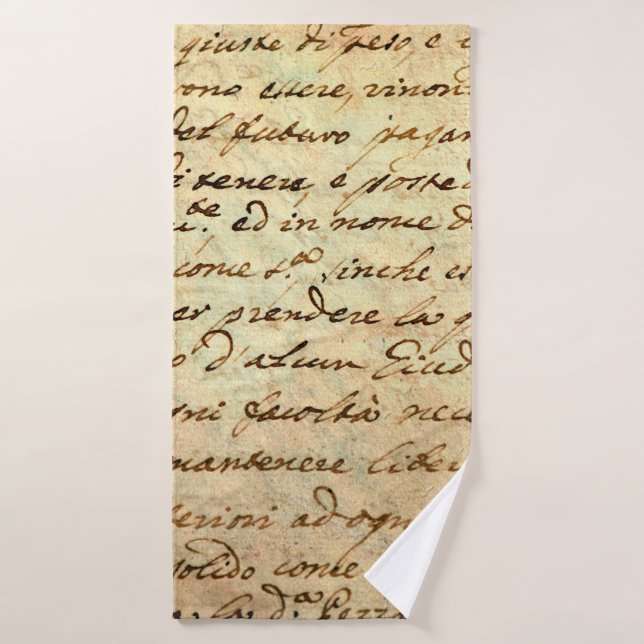 giuste di peso, e
vono essere, rinon
del futuro pagam
di tenere, e posted
te. ed in nome d
come s.a sinche es
er prendere la
o d'alcun Giud
gni facoltà nec
mantenere liber
teriori ad ogn
solido come